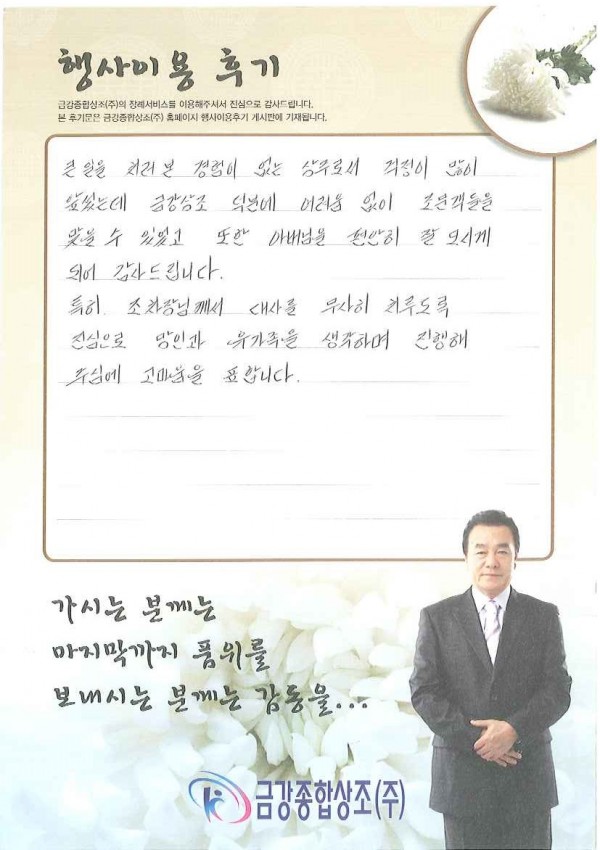 행사이용 후기
금강종합상조(주)의 장례서비스를 이용해주셔서 진심으로 감사드립니다.
본 후기문은 금강종합상조(주) 홈페이지 행사이용후기 게시판에 기재됩니다.
큰일을 치러본 경험이 없는 상주로서 걱정이 많이
앞섰는데 금강상조 덕분에 어려움 없이 조문객들을
맞을 수 있었고 또한 아버님을 편안히 잘 모시게
되어 감사드립니다.
특히. 조차장님께서 대사를 무사히 치루도록
진심으로 망인과 유가족을 생각하며 진행해
주심에 고마움을 표합니다.
가시는 분께는
마지막까지 품위를
보내시는 분께는 감동을...
금강종합상조(주)